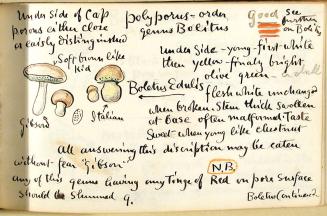 Under side of Cap
porous either close
or easily distinguished
polyporus - order
genus Boletus
Good See
further
on Boleti
Soft brown like
Kid
Under Side - young - first - white
then yellow - finaly bright
olive green
Boletus Edulis
flesh white unchanged
when broken. Stem thick swollen
at base often malformed. Taste
Sweet - when young like chestnut
Gibson
Italian
All answering this discription may be eaten
without fear "Gibson"
N.B.
any of this genus leaving any Tinge of Red on pore Surface
Should be Shunned 9.
Boletus Continued